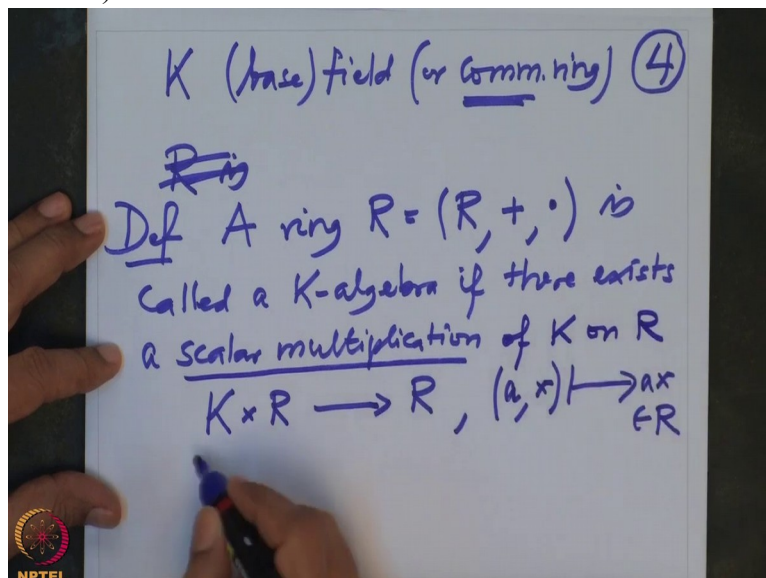 K (base) field (or comm. ring) ④
R is
Def A ring R = (R, +, ·) is
called a K-algebra if there exists
a scalar multiplication of K on R
K × R ⟶ R , (a, x) ⟼ ax
∈ R
NPTEL